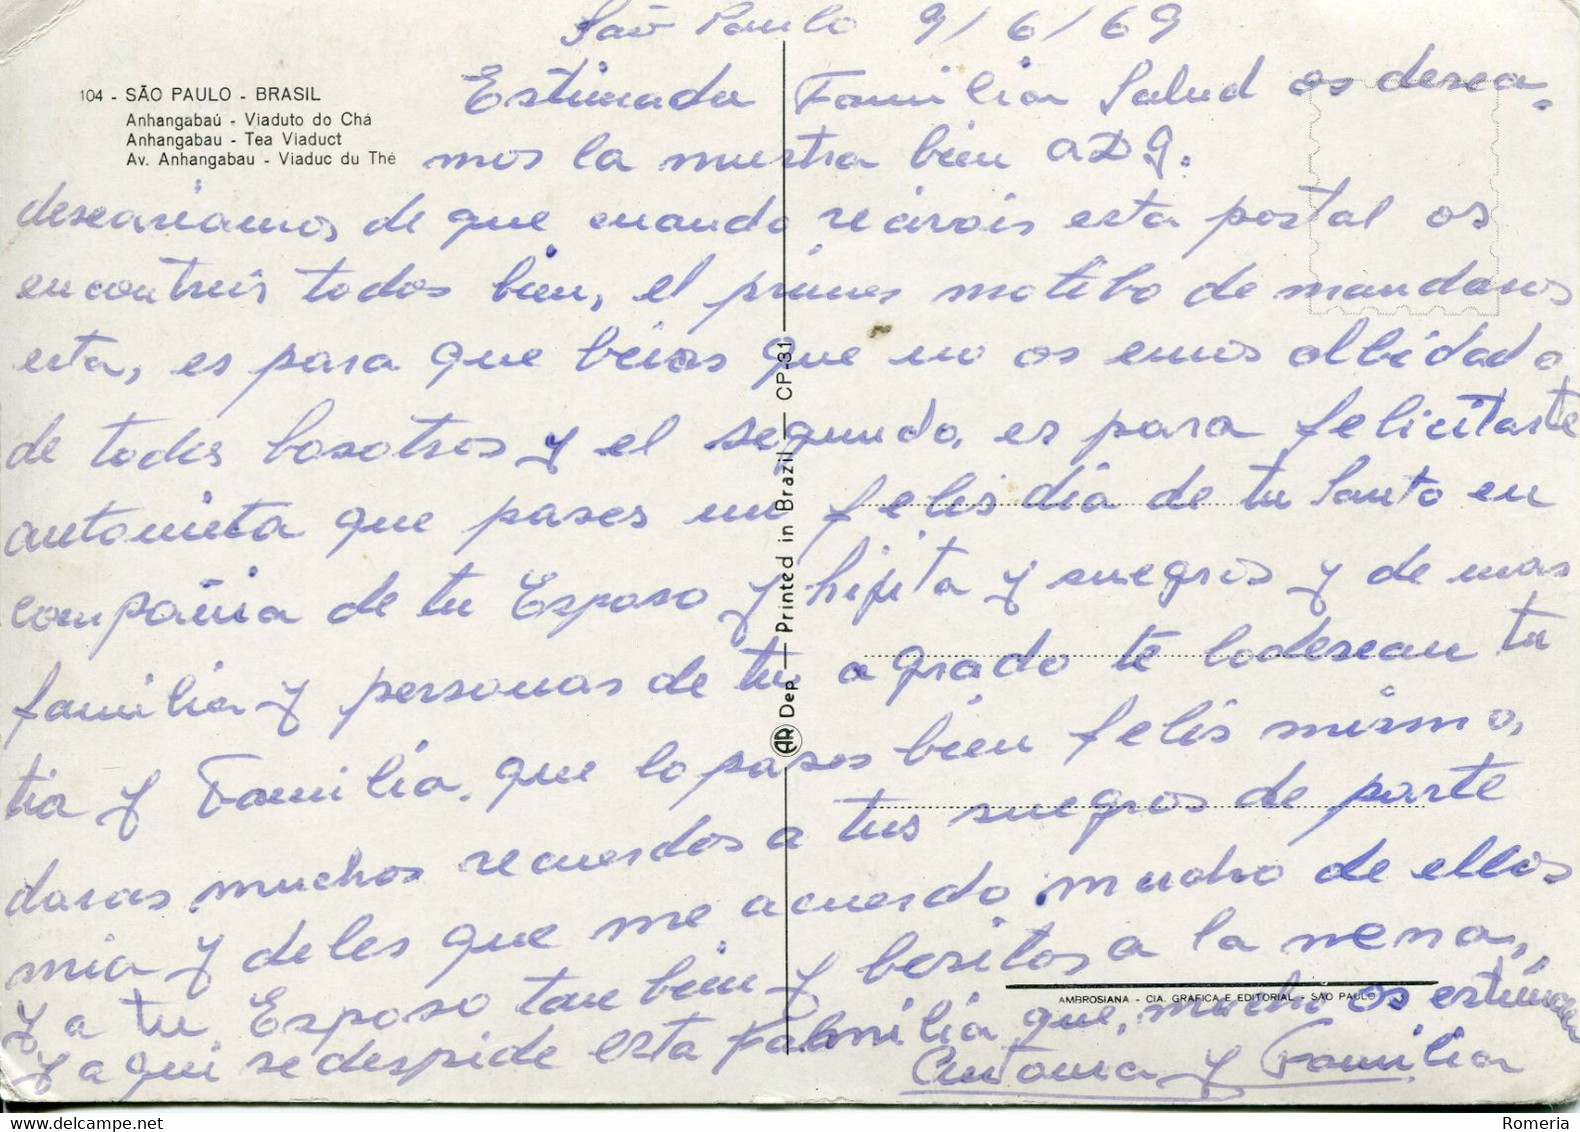 São Paulo 9/6/69
104 - SÃO PAULO - BRASIL
Anhangabaú - Viaduto do Chá
Anhangabau - Tea Viaduct
Av. Anhangabau - Viaduc du Thé
Estimada Familia Salud os desea-
mos la nuestra bien a D g.
deseariamos de que cuando recivais esta postal os
encontreis todos bien, el primer motibo de mandaros
esta, es para que beias que no os emos olbidado
de todos bosotros y el segundo, es para felicitarte
antonieta que pases un felis dia de tu Santo en
compañia de tu Esposo y hijita y suegros y de mas
familia y personas de tu agrado te lo desean tu
tia y Familia. que lo pases bien felis mismo,
daras muchos recuerdos a tus suegros de parte
mia y deles que me acuerdo mucho de ellos
y a tu Esposo tan bien y besitos a la nena,
y aqui se despide esta Familia que, mucho os estiman
Antonia y Familia
CP-31
Printed in Brazil
Dep
AR
AMBROSIANA - CIA. GRAFICA E EDITORIAL - SÃO PAULO
Romeria